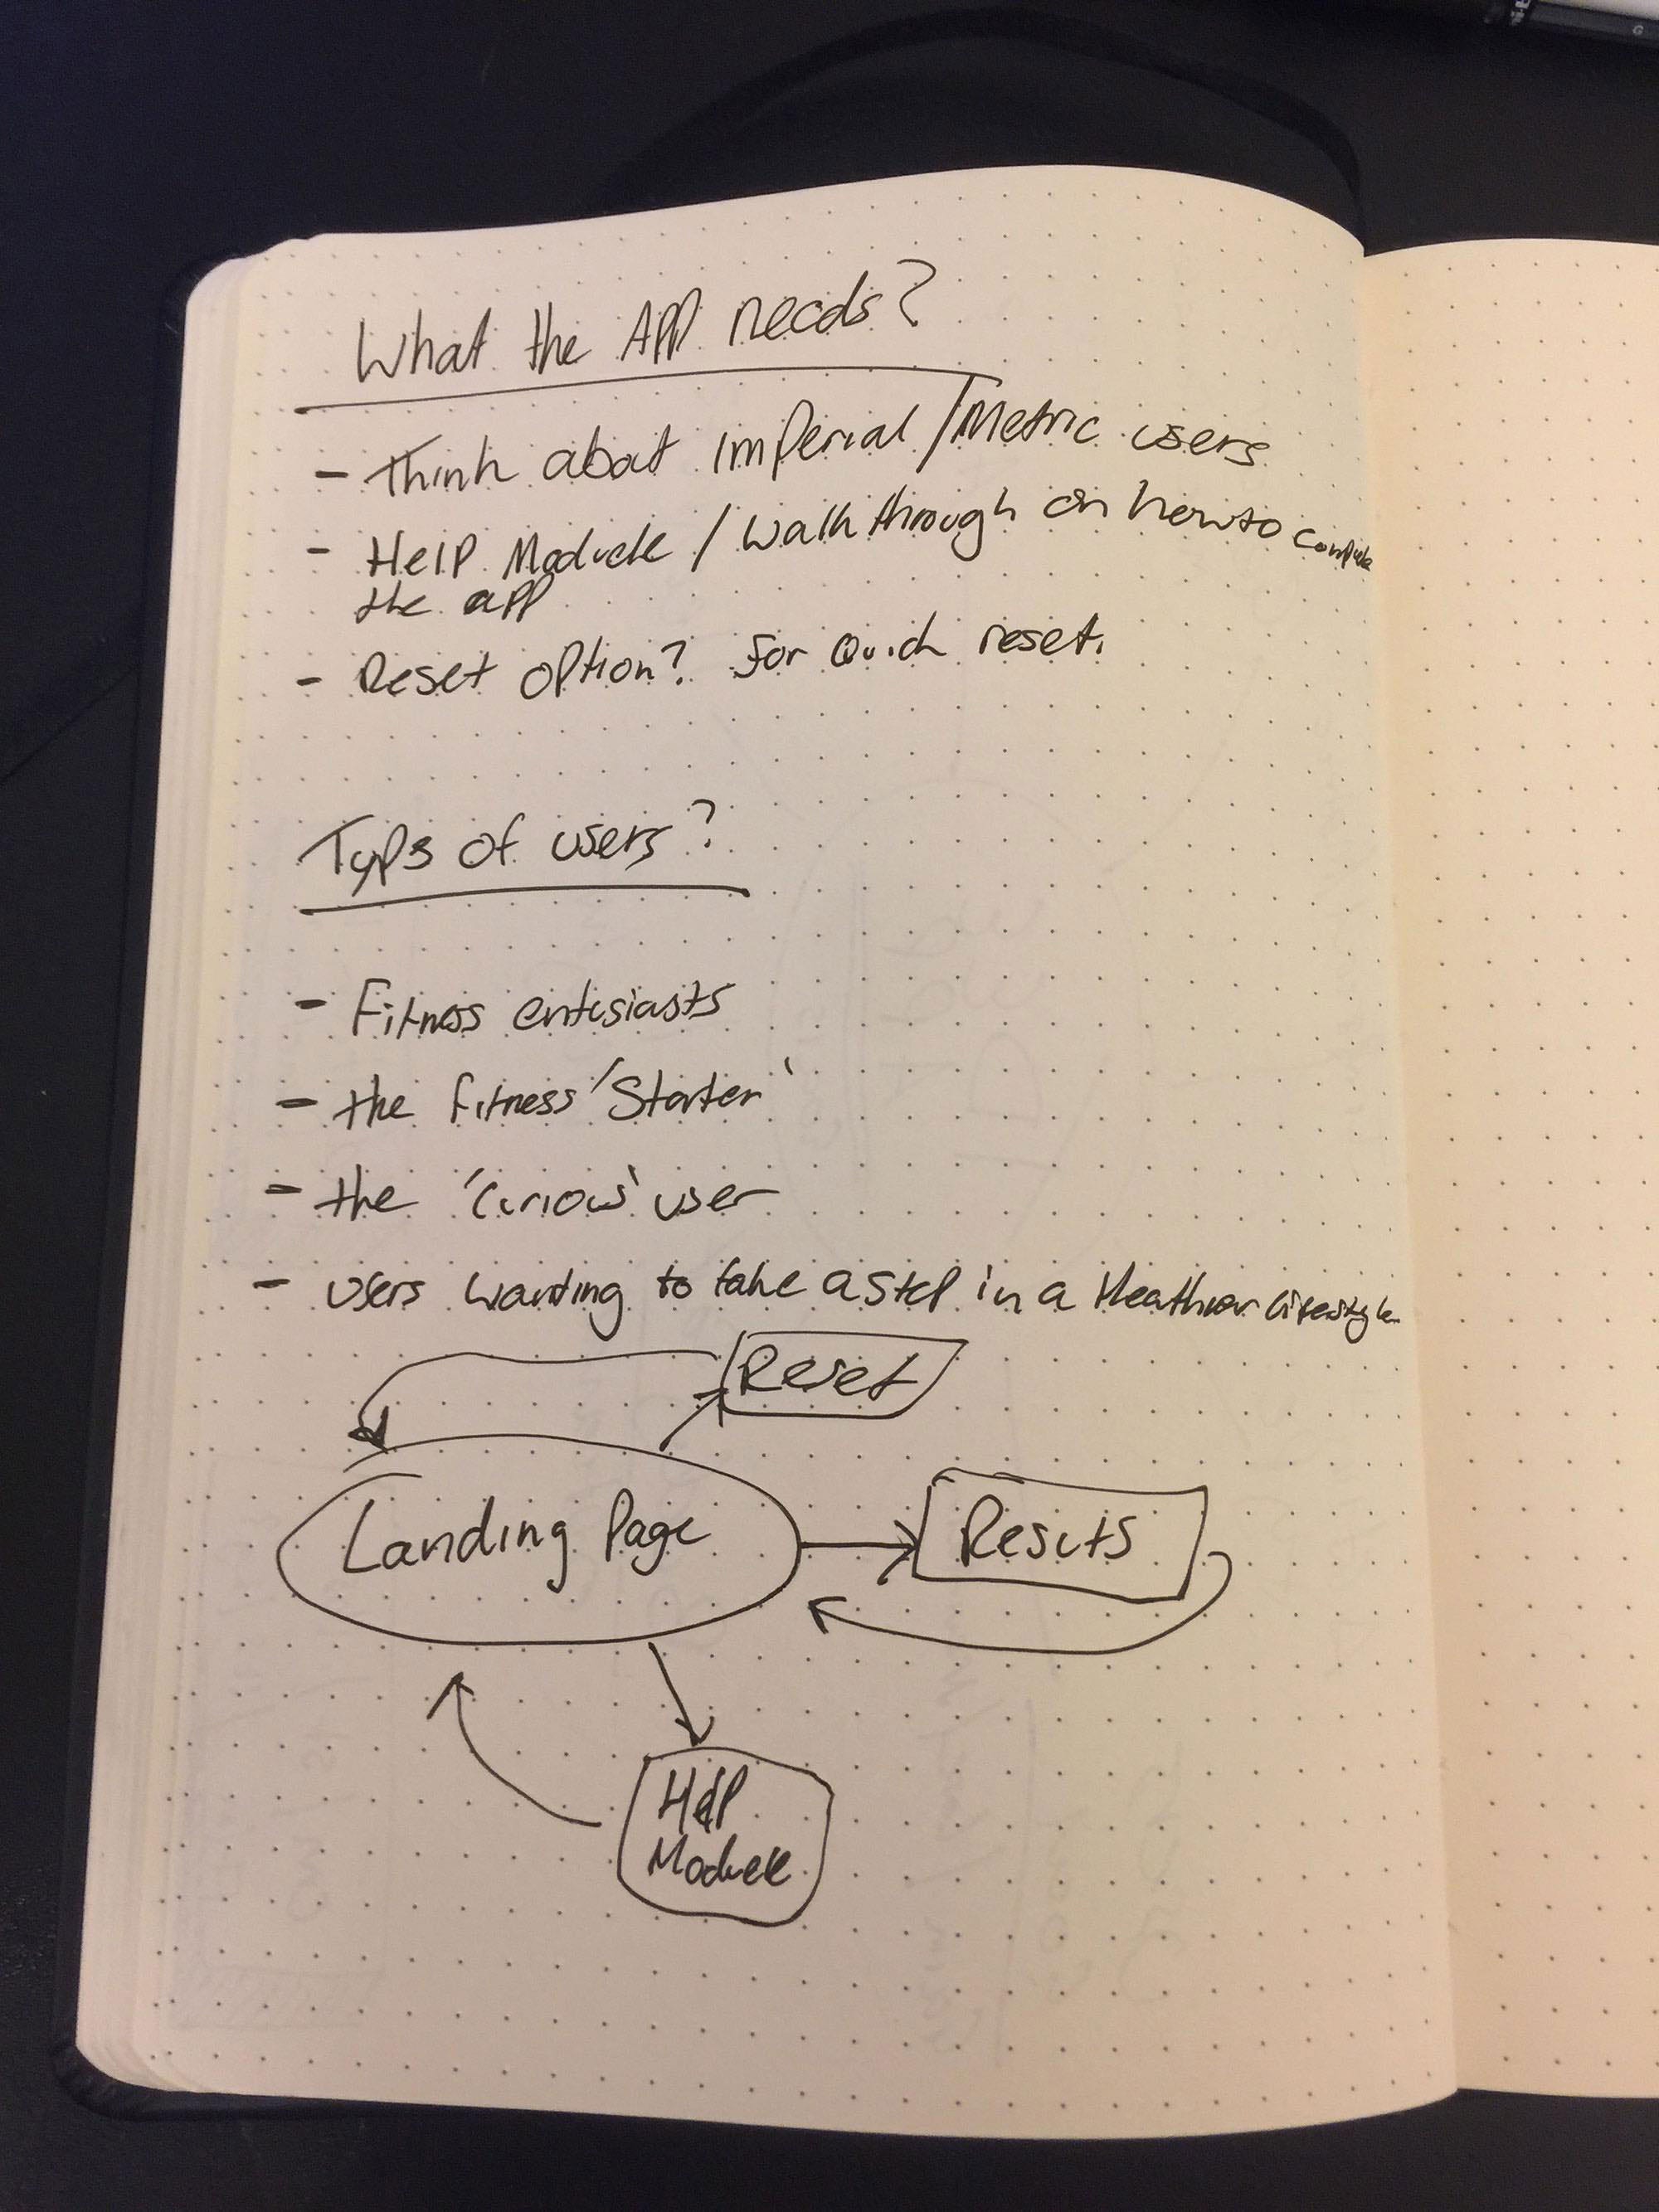 What the App needs?
- Think about imperial / Metric users
- Help Module / Walkthrough on how to complete
the app
- Reset option? for Quick reset.
Typs of users?
- Fitness entusiasts
- the fitness 'Starter'
- the 'Curious' user
- users wanting to take a step in a Heathier lifestyle
Reset
Landing Page
Results
Help
Module